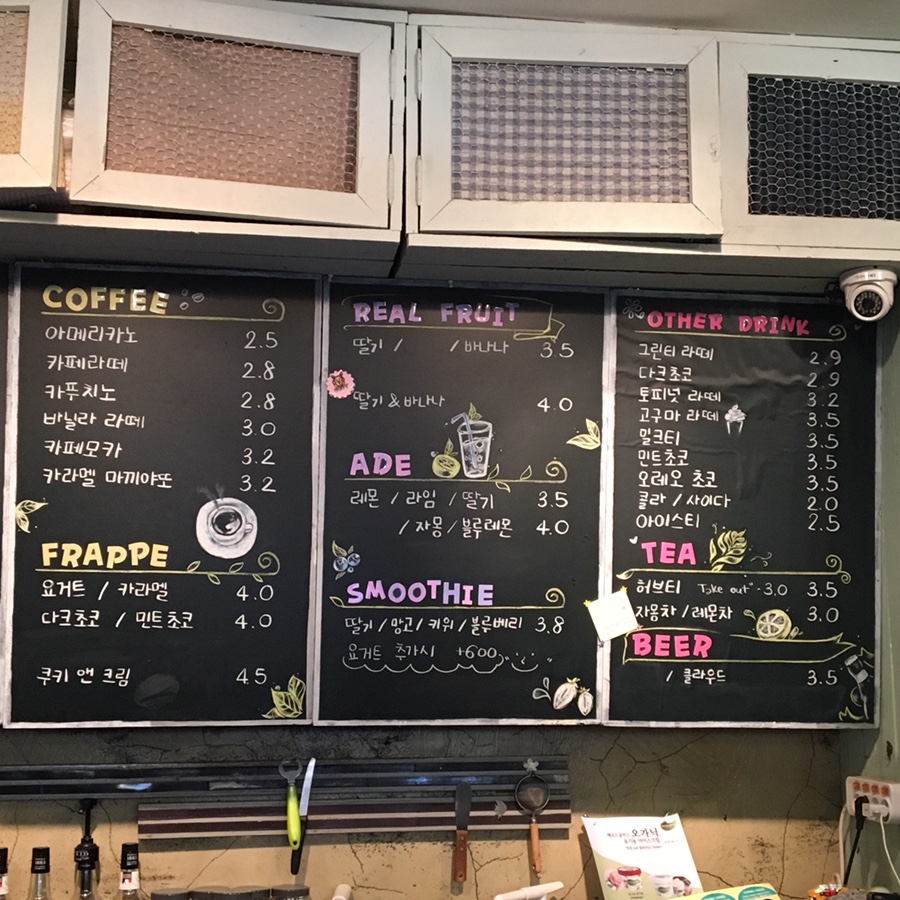 COFFEE
아메리카노 2.5
카페라떼 2.8
카푸치노 2.8
바닐라 라떼 3.0
카페모카 3.2
카라멜 마끼야또 3.2
FRAPPE
요거트 / 카라멜 4.0
다크초코 / 민트초코 4.0
쿠키 앤 크림 4.5
REAL FRUIT
딸기 / / 바나나 3.5
딸기 & 바나나 4.0
ADE
레몬 / 라임 / 딸기 3.5
/ 자몽 / 블루레몬 4.0
SMOOTHIE
딸기 / 망고 / 키위 / 블루베리 3.8
요거트 추가시 +600
OTHER DRINK
그린티 라떼 2.9
다크초코 2.9
토피넛 라떼 3.2
고구마 라떼 3.5
밀크티 3.5
민트초코 3.5
오레오 초코 3.5
콜라 / 사이다 2.0
아이스티 2.5
TEA
허브티 Take out - 3.0 3.5
자몽차 / 레몬차 3.0
BEER
/ 클라우드 3.5
오가닉